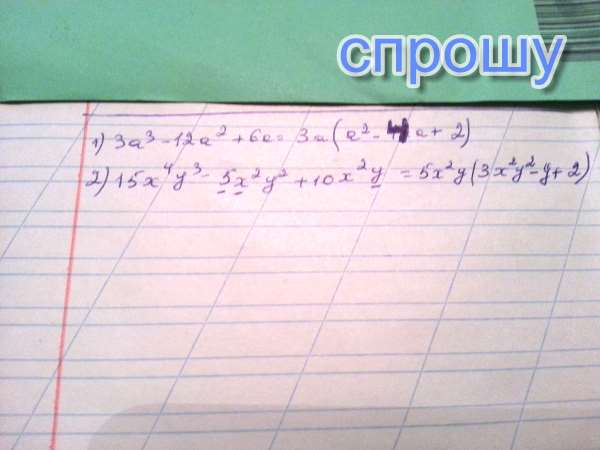 спрошу
1) 3a³ - 12a² + 6a = 3a(a² - 4a + 2)
2) 15x⁴y³ - 5x²y² + 10x²y = 5x²y(3x²y² - y + 2)